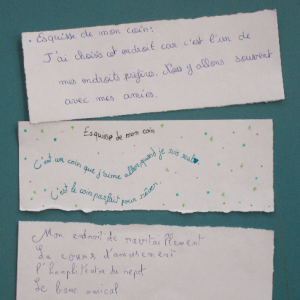 • Esquisse de mon coin:
J'ai choisis cet endroit car c'est l'un de
mes endroits préférés. Nous y allons souvent
avec mes amies.
Esquisse de mon coin
C'est un coin que j'aime aller quand je suis seule.
C'est le coin parfait pour rêver.
Mon endroit de ravitaillement
Le cours d'amusement
l'amphithéâtre du
Le banc amical